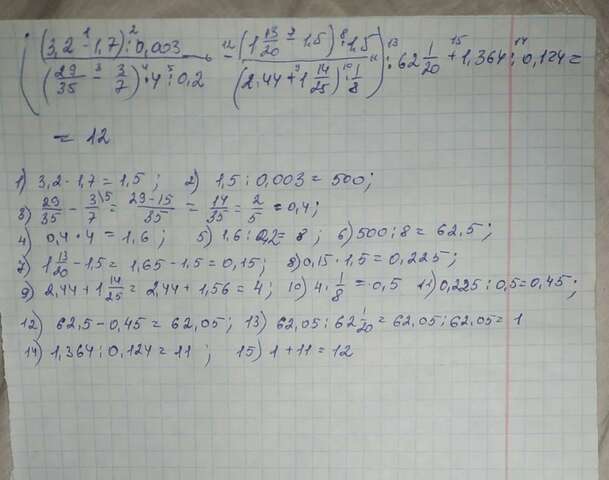 ( (3,2 - 1,7) : 0,003 / (29/35 - 3/7) · 4 : 0,2 - (1 13/20 - 1,5) · 1,5 / (2,44 + 1 14/25) · 1/8 ) : 62 1/20 + 1,364 : 0,124 =
= 12
1) 3,2 - 1,7 = 1,5 ; 2) 1,5 : 0,003 = 500;
3) 29/35 - 3\5/7 = 29-15/35 = 14/35 = 2/5 = 0,4;
4) 0,4 · 4 = 1,6 ; 5) 1,6 : 0,2 = 8 ; 6) 500 : 8 = 62,5;
7) 1 13/20 - 1,5 = 1,65 - 1,5 = 0,15; 8) 0,15 · 1,5 = 0,225;
9) 2,44 + 1 14/25 = 2,44 + 1,56 = 4; 10) 4 · 1/8 = 0,5 11) 0,225 : 0,5 = 0,45;
12) 62,5 - 0,45 = 62,05; 13) 62,05 : 62 1/20 = 62,05 : 62,05 = 1
14) 1,364 : 0,124 = 11 ; 15) 1 + 11 = 12